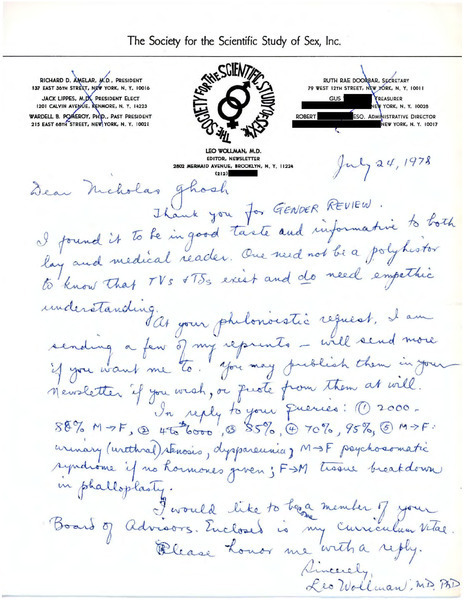 The Society for the Scientific Study of Sex, Inc.
RICHARD D. AMELAR, M.D., PRESIDENT
137 EAST 36TH STREET, NEW YORK, N. Y. 10016
JACK LIPPES, M.D., PRESIDENT ELECT
1201 CALVIN AVENUE, KENMORE, N. Y. 14223
WARDELL B. POMEROY, PH.D., PAST PRESIDENT
215 EAST 68TH STREET, NEW YORK, N. Y. 10021
THE SOCIETY FOR THE SCIENTIFIC STUDY OF SEX, INC.
RUTH RAE DOORBAR, SECRETARY
79 WEST 12TH STREET, NEW YORK, N. Y. 10011
GUS TREASURER
N. Y. 10028
ROBERT ESQ. Administrative Director
N. Y. 10017
LEO WOLLMAN, M.D.
EDITOR, NEWSLETTER
2802 MERMAID AVENUE, BROOKLYN, N. Y. 11224
(212)
July 24, 1978
Dear Nicholas Ghosh
Thank you for GENDER REVIEW.
I found it to be in good taste and informative to both
lay and medical reader. One need not be a polyhistor
to know that TVs & TSs exist and do need empathic
understanding.
At your philonoistic request, I am
sending a few of my reprints – will send more
if you want me to. You may publish them in your
Newsletter if you wish, or quote from them at will.
In reply to your queries: ① 2000-
88% M→F, ② 4 to 6000, ③ 85%, ④ 70%, 95%, ⑤ M→F:
urinary (urethral) stenosis, dyspareunia; M→F psychosomatic
syndrome if no hormones given; F→M tissue breakdown
in phalloplasty.
I would like to become a member of your
Board of Advisors. Enclosed is my curriculum vitae.
Please honor me with a reply.
Sincerely,
Leo Wollman, M.D. PhD